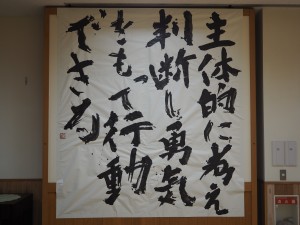 主体的に考え
判断し勇気
をもって行動
できる